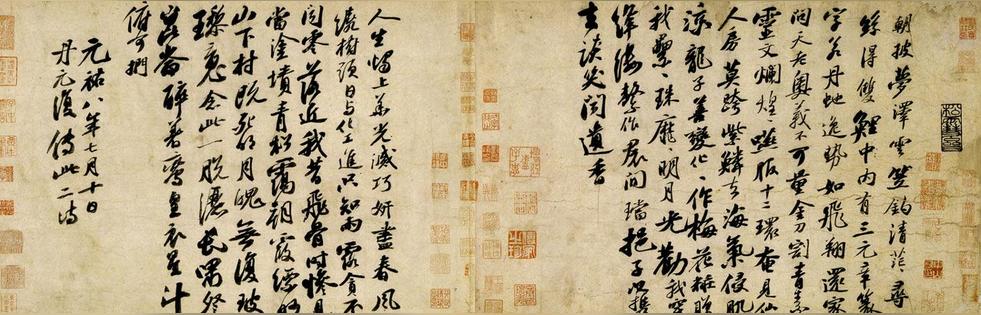 朝披夢澤雲笠釣清茫〻尋
絲得雙鯉中內有三元章篆
字若丹虵逸勢如飛翔還家
問天老奧義不可量金刀割青素
靈文爛煌〻嚥服十二環奄見仙
人房莫跨紫鱗去海氣侵肌
涼龍子善變化〻作梅花粧贈
我纍〻珠靡〻明月光勸我穿
絳縷繫作裙間璫挹子以攜
去談笑聞遺香
人生燭上華光滅巧妍盡春風
繞樹頭日與化工進只知雨露貪不
聞零落近我昔飛骨時慘見
當塗墳青松靄朝霞縹緲
山下村既死明月魄無復玻
瓈魂念此一脫灑長嘯登
崑崙醉著鸞皇衣星斗
俯可捫
元祐八年七月十日
丹元復傳此二詩